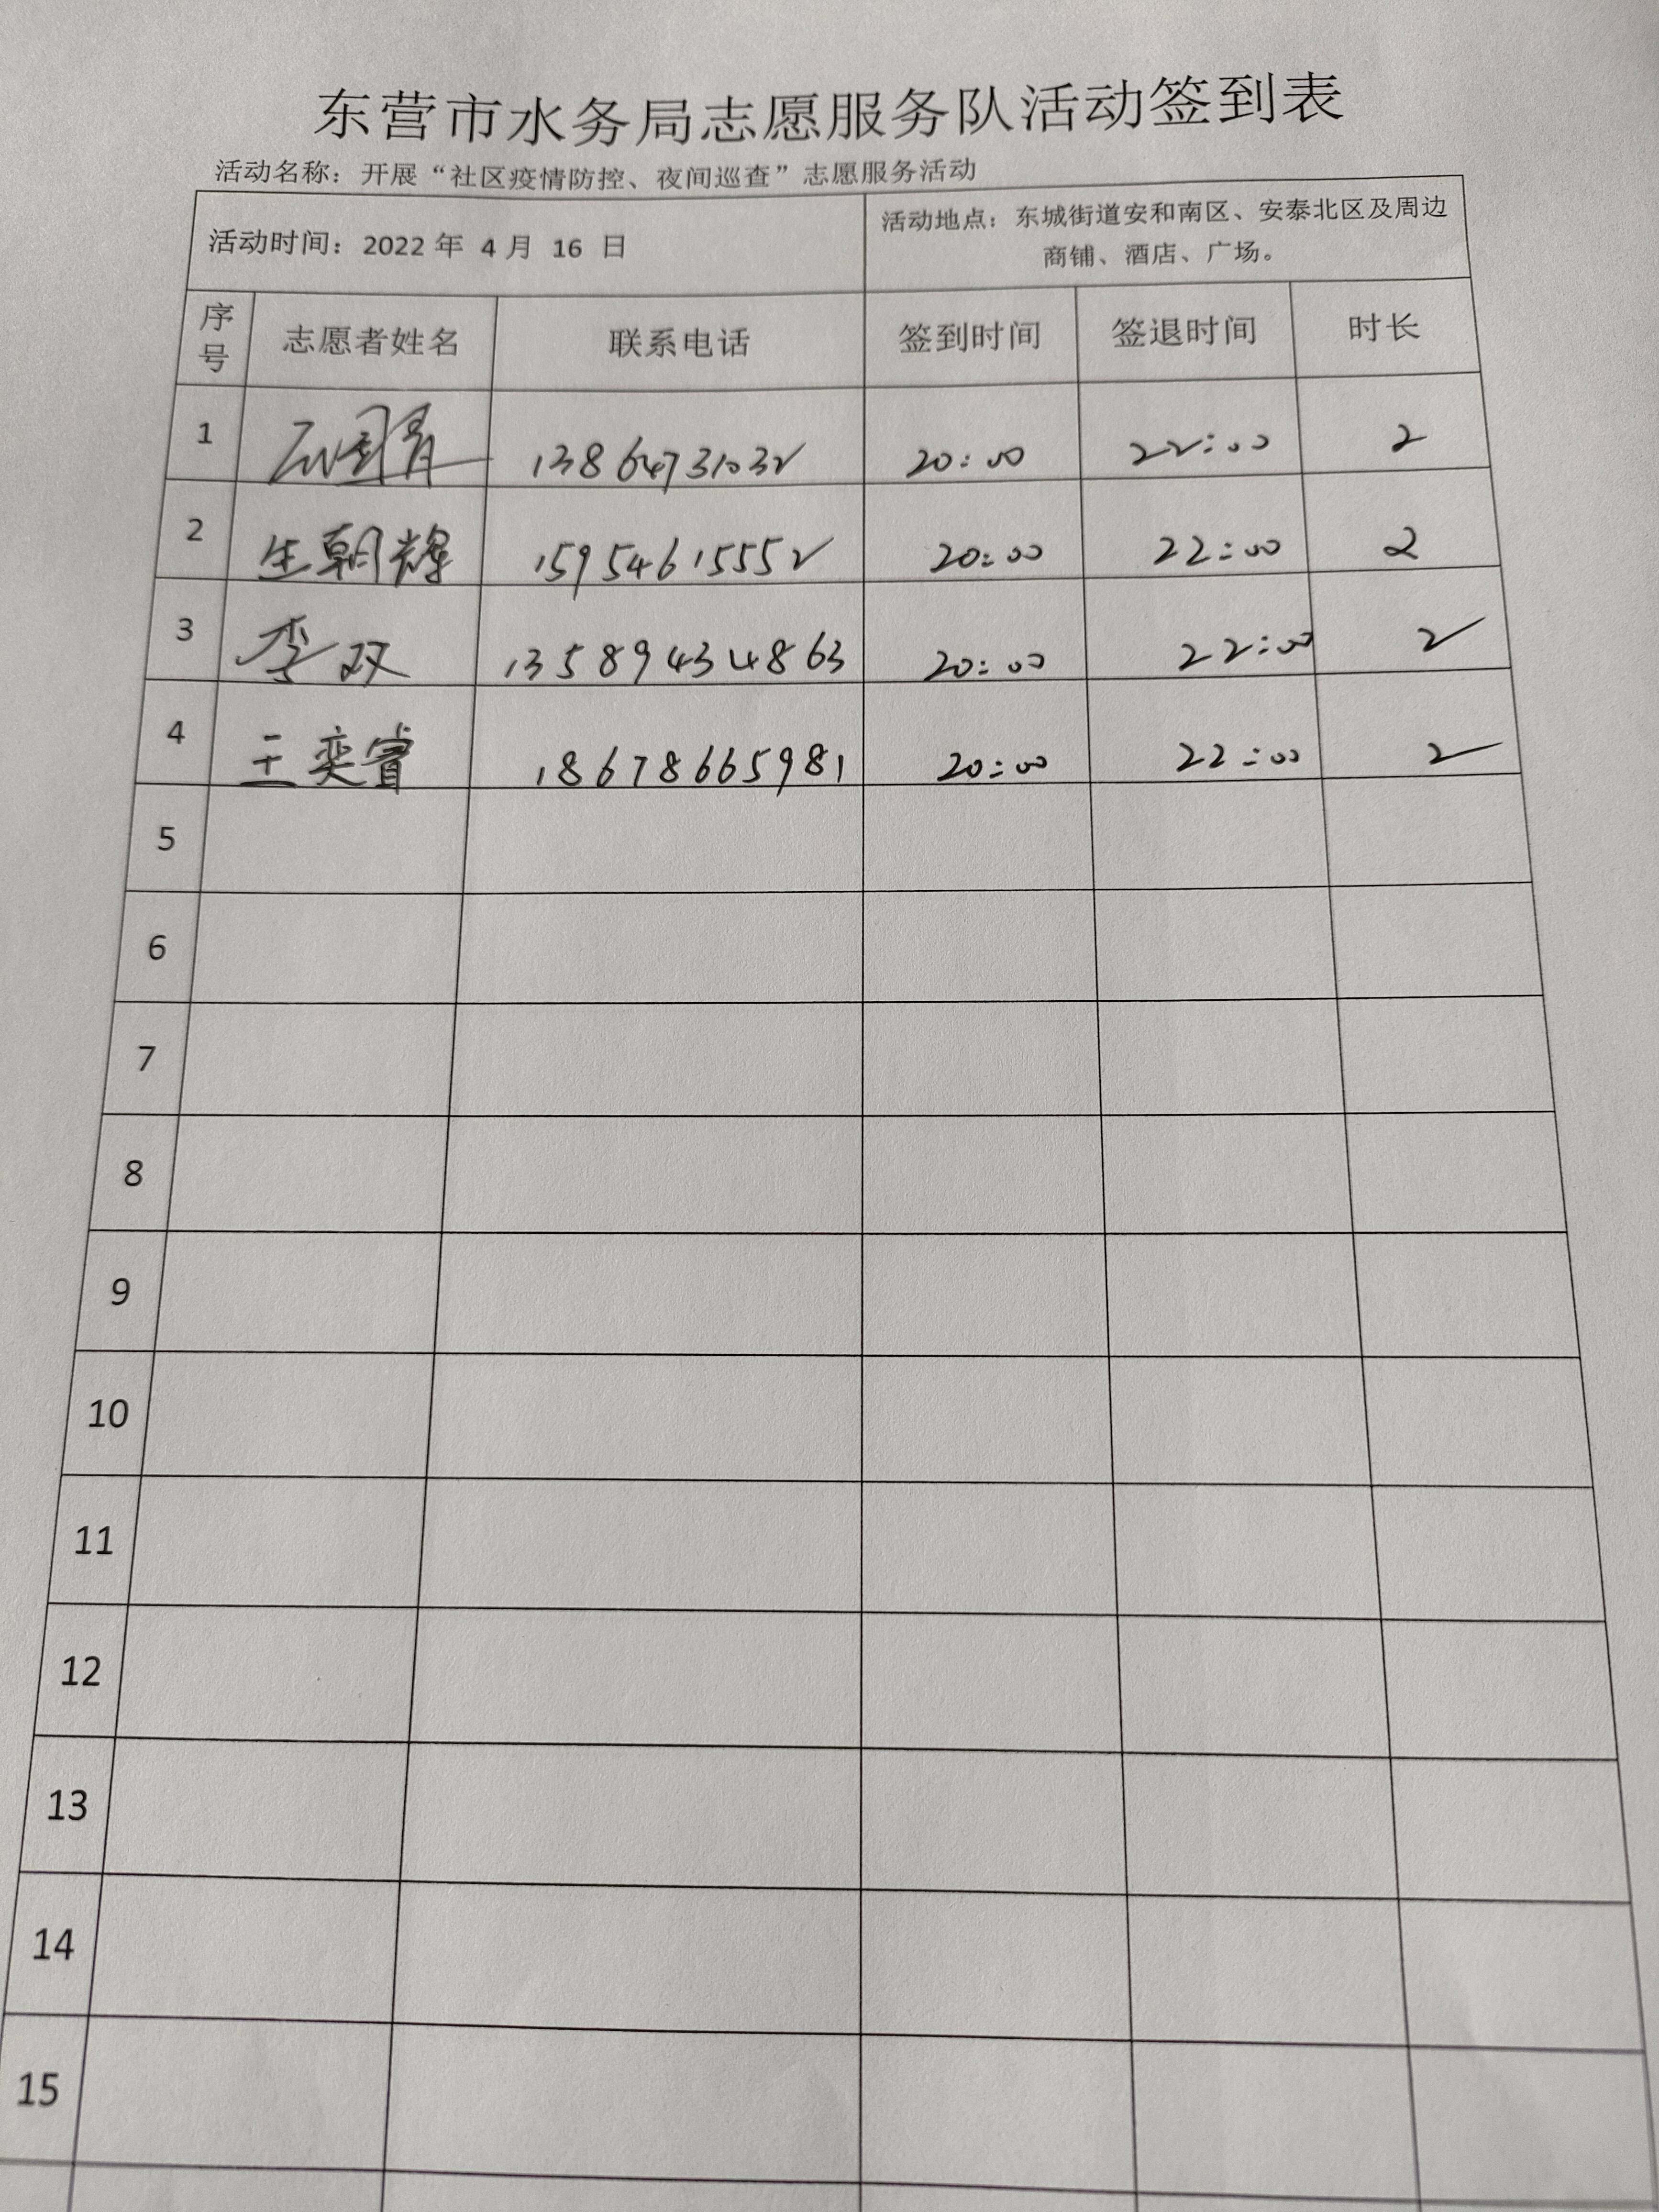 东营市水务局志愿服务队活动签到表
活动名称：开展“社区疫情防控、夜间巡查”志愿服务活动
活动时间：2022 年 4 月 16 日
活动地点：东城街道安和南区、安泰北区及周边
商铺、酒店、广场。
序号 志愿者姓名 联系电话 签到时间 签退时间 时长
1 13864731032 20:00 22:00 2
2 生朝辉 15954615552 20:00 22:00 2
3 李双 13589434863 20:00 22:00 2
4 王奕睿 18678665981 20:00 22:00 2
5
6
7
8
9
10
11
12
13
14
15